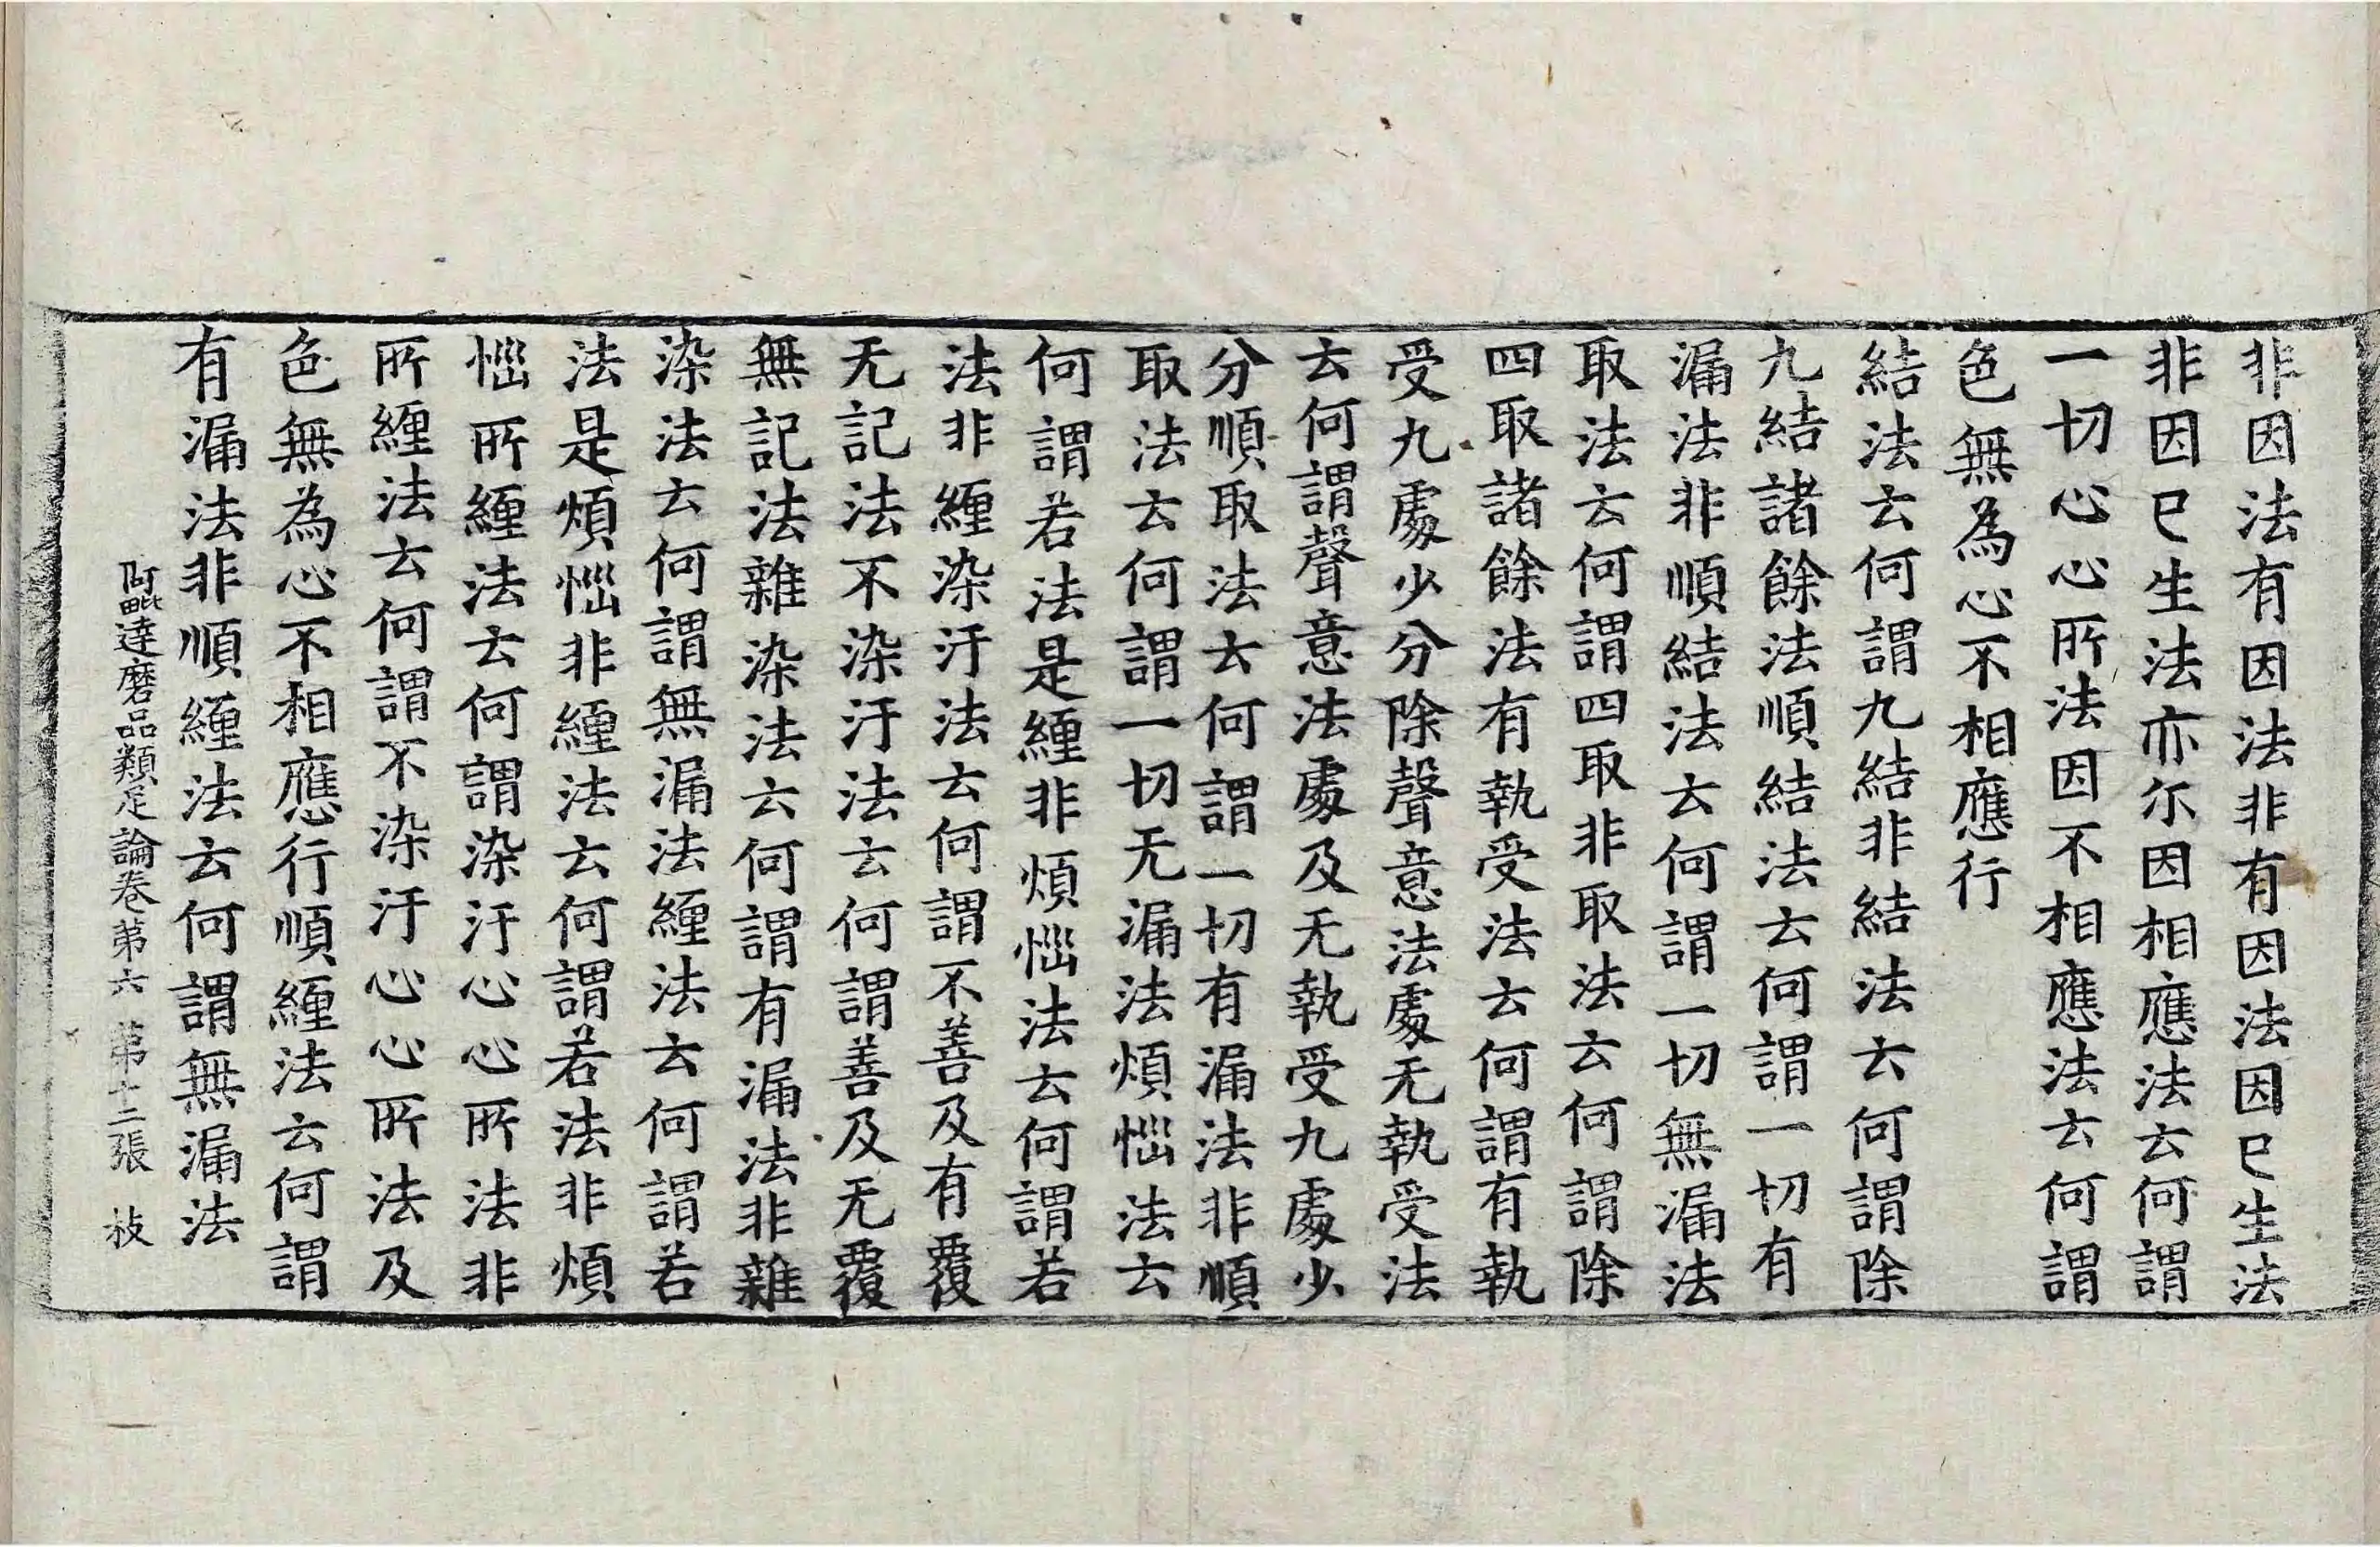 非因法有因法非有因法因已生法
非因已生法亦尓因相應法云何謂
一切心心所法因不相應法云何謂
色無為心不相應行
結法云何謂九結非結法云何謂除
九結諸餘法順結法云何謂一切有
漏法非順結法云何謂一切無漏法
取法云何謂四取非取法云何謂除
四取諸餘法有執受法云何謂有執
受九處少分除聲意法處无執受法
云何謂聲意法處及无執受九處少
分順取法云何謂一切有漏法非順
取法云何謂一切无漏法煩惱法云
何謂若法是纏非煩惱法云何謂若
法非纏染汙法云何謂不善及有覆
无記法不染汙法云何謂善及无覆
無記法雜染法云何謂有漏法非雜
染法云何謂無漏法纏法云何謂若
法是煩惱非纏法云何謂若法非煩
惱所纏法云何謂染汙心心所法非
所纏法云何謂不染汙心心所法及
色無為心不相應行順纏法云何謂
有漏法非順纏法云何謂無漏法
阿毗達磨品類足論卷第六 第十二張 枝